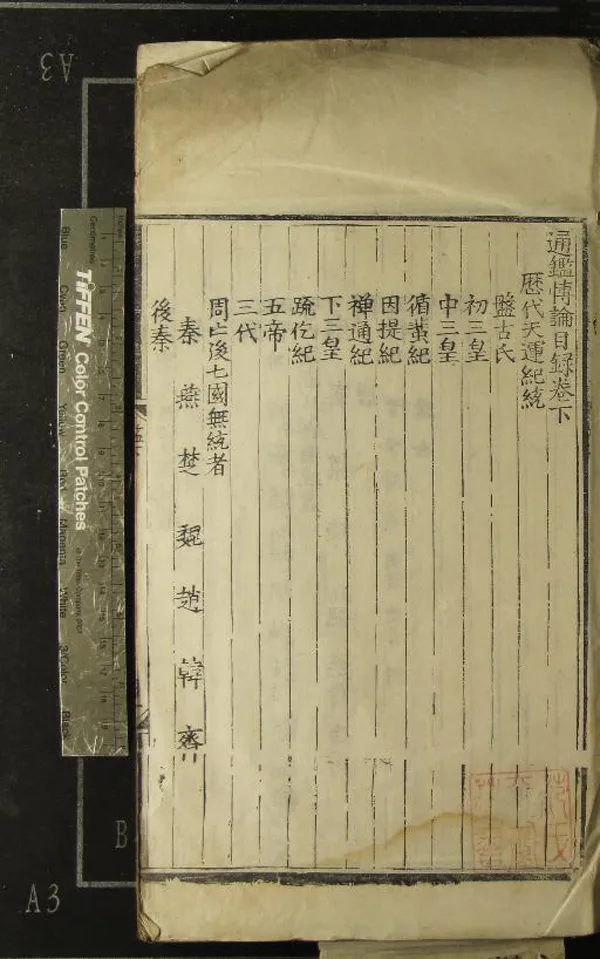 通鑑博論目録卷下
歷代天運紀統
盤古氏
初三皇
中三皇
循蜚紀
因提紀
禅通紀
下三皇
疏仡紀
五帝
三代
周亡後七國無統者
秦 燕 楚 魏 趙 韓 齊
後秦
A3
TIFFEN Color Control Patches
Centimetres
Inches
Blue
Cyan
Green
Yellow
Red
Magenta
White
3/Color
Black
B
A3